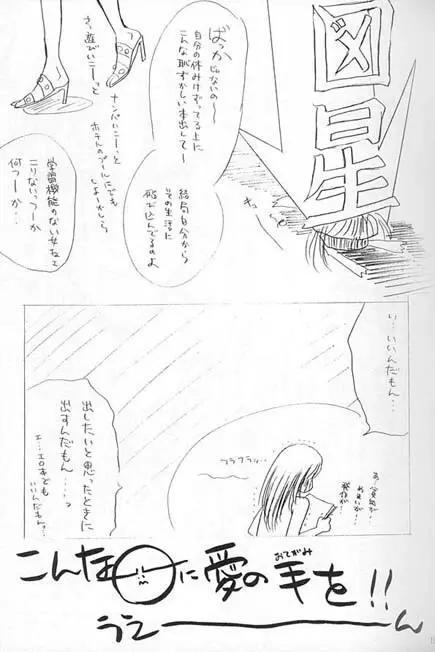 図星
ばっか
じゃないの〜
自分の休みけずってる上に
こんな恥ずかしい本出して〜
結局自分から
その生活に
飛び込んでるのよ
さっ遊びいこーっと
ナンパいこーっと
ホテルのプールにでも
しよーかしら
学習機能のない女ねェ
こりないっつーか
何つーか…
い…いいんだもん…
あ、貧血が
めまいが…
発作が…
フラフラッ…
出したいと思ったときに
出すんだもん……っ
エ…エロ本でも
いいんだもん…っ
こんな
に愛の手を!!
おてがみ
うえーーーーん